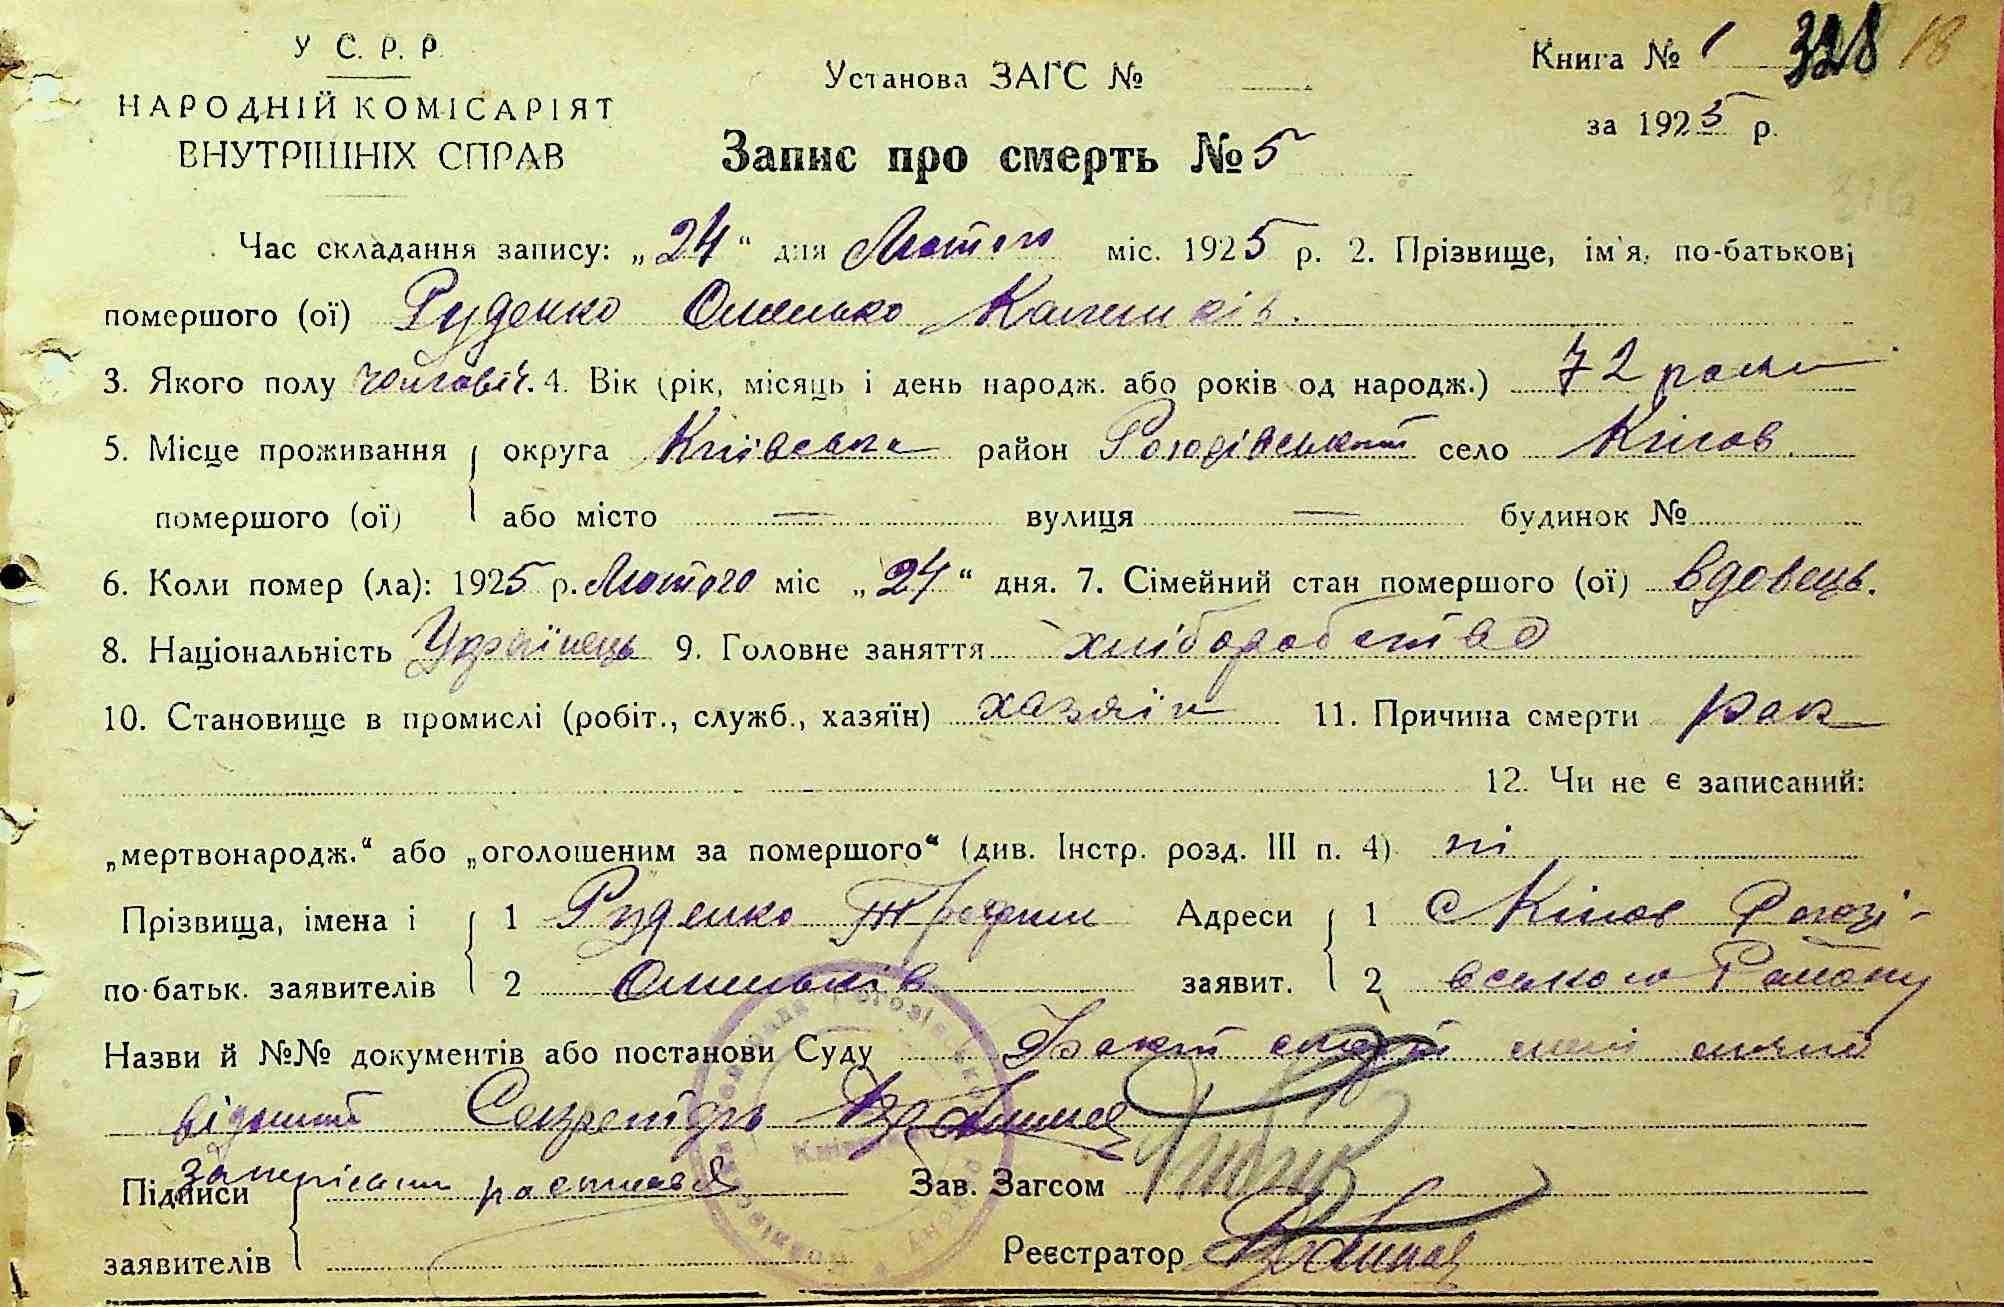 У С. Р. Р.
НАРОДНІЙ КОМІСАРІЯТ
ВНУТРІШНІХ СПРАВ
Установа ЗАГС №
Книга № 1 328 18
за 1925 р.
Запис про смерть № 5
Час складання запису: „24“ дня Лютого міс. 1925 р. 2. Прізвище, ім'я, по-батькові
помершого (ої) Руденко Омелько Калеників.
3. Якого полу чоловіч. 4. Вік (рік, місяць і день народж. або років од народж.) 72 роки
5. Місце проживання округа Київська район Рогозівський село Кійлов.
помершого (ої) або місто — вулиця — будинок №
6. Коли помер (ла): 1925 р. Лютого міс „24“ дня. 7. Сімейний стан помершого (ої) вдовець.
8. Національність Українець 9. Головне заняття хліборобство
10. Становище в промислі (робіт., служб., хазяїн) хазяїн 11. Причина смерти рак
12. Чи не є записаний:
„мертвонародж.“ або „оголошеним за помершого“ (див. Інстр. розд. III п. 4) ні
Прізвища, імена і 1 Руденко Трофим Адреси 1 с Кійлов Рогозі-
по-батьк. заявителів 2 Омельків заявит. 2 вського Району
Назви й №№ документів або постанови Суду мені
відомий Секретарь
Підписи Зав. Загсом
заявителів Реєстратор